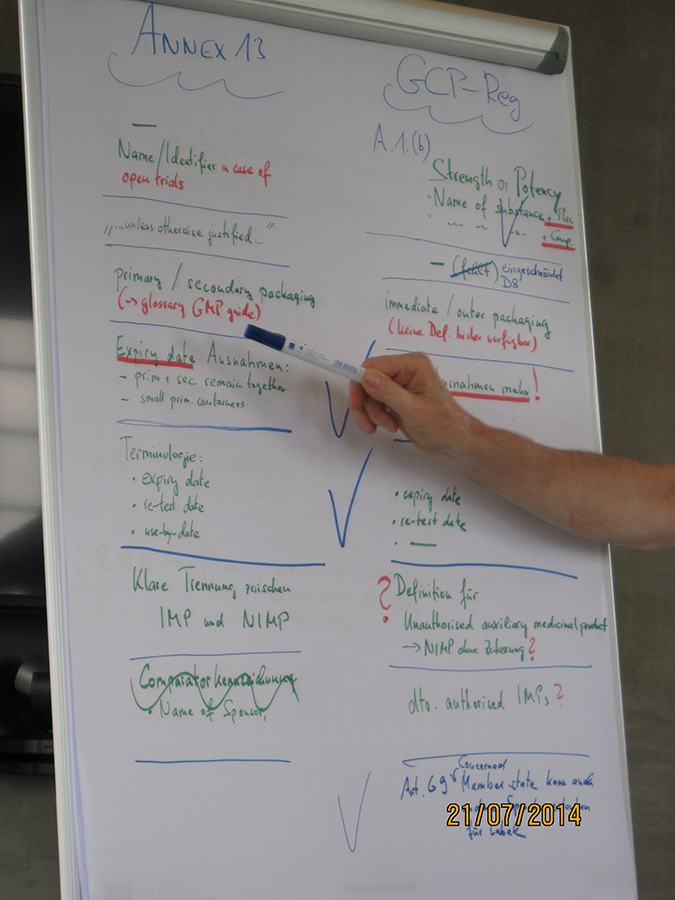 ANNEX 13
—
Name/Identifier in case of
open trials
„...unless otherwise justified..."
primary / secondary packaging
(→ glossary GMP guide)
Expiry date Ausnahmen:
– prim + sec remain together
– small prim. containers
Terminologie:
• expiry date
• re-test date
• use-by-date
Klare Trennung zwischen
IMP und NIMP
Comparatorkennzeichnung
• Name of Sponsor,
GCP-Reg
A.1.(b)
Strength or Potency
• Name of substance + Plac
+ Comp.
– (fehlt) eingeschränkt
D8
immediate / outer packaging
(keine Def. bisher verfügbar)
Ausnahmen mehr!
• expiry date
• re-test date
• —
? Definition für
Unauthorised auxiliary medicinal product
→ NIMP ohne Zulassung?
dto. authorised IMPs?
Concerned
Art. 69 Member state kann auch
für Label
21/07/2014